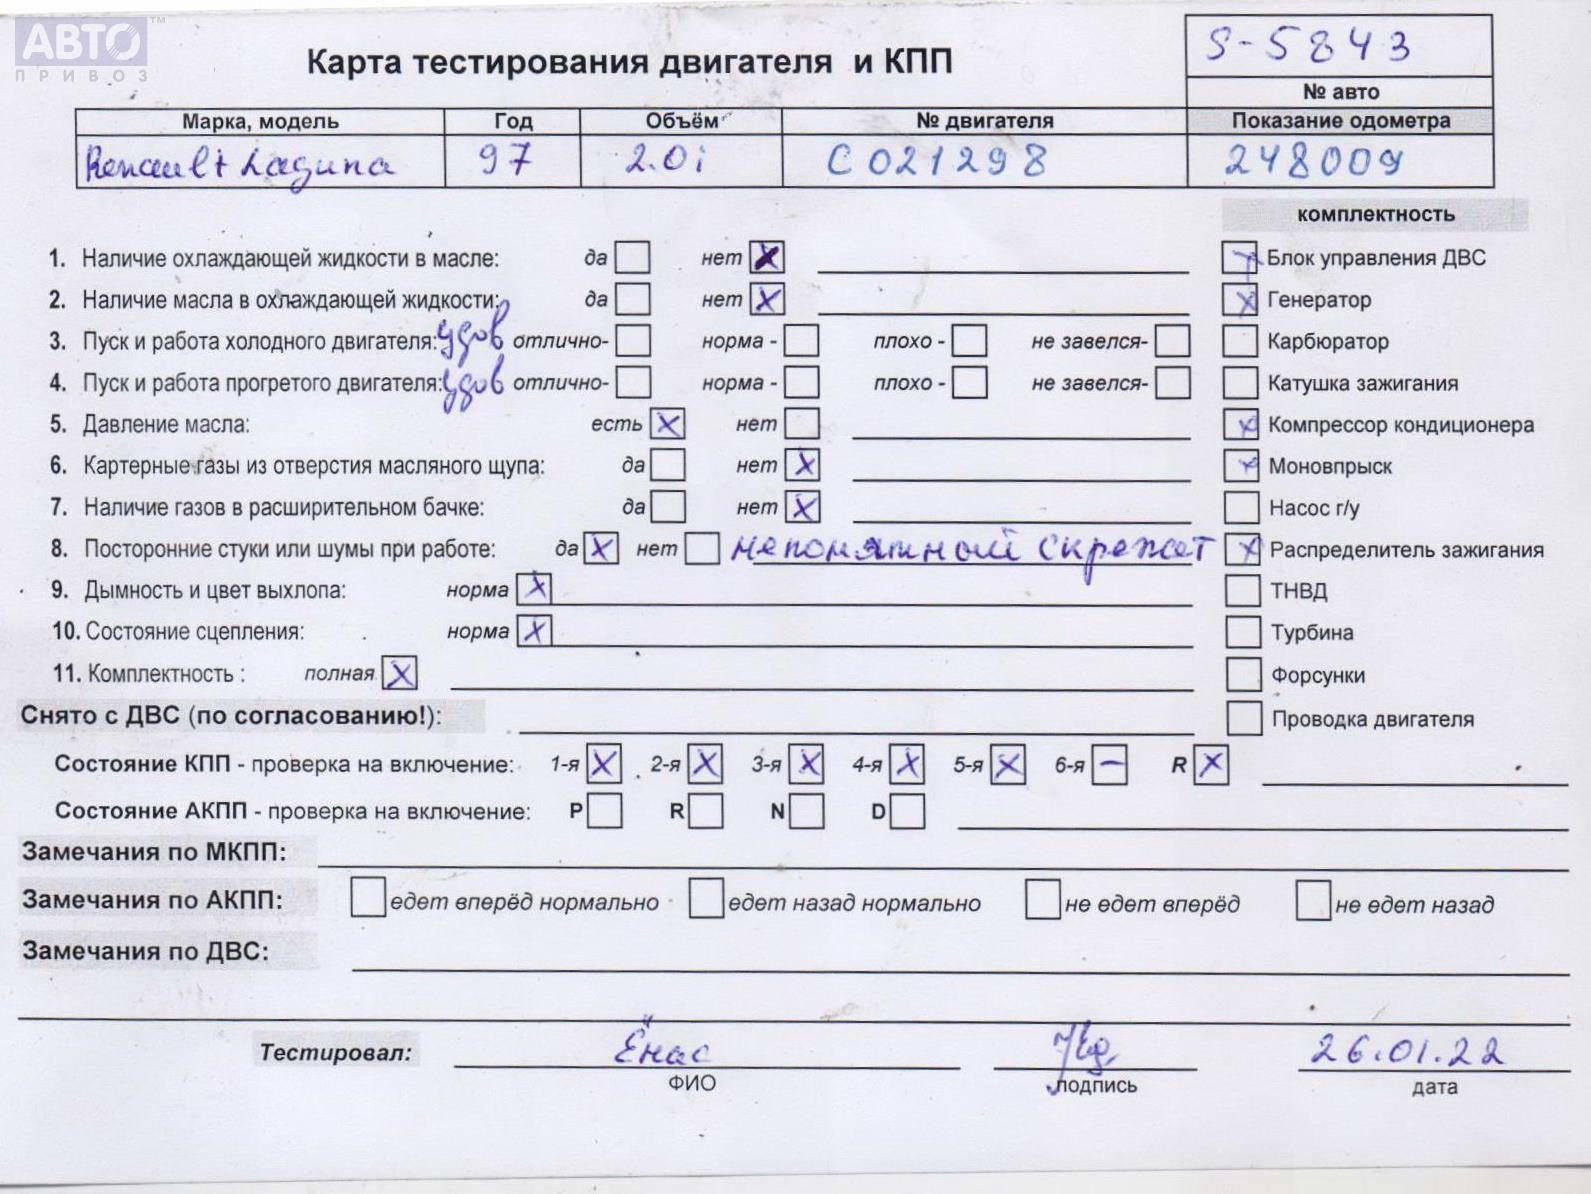 АВТО™
ПРИВОЗ
Карта тестирования двигателя и КПП
S-5843
№ авто
Марка, модель Год Объём № двигателя Показание одометра
Renault Laguna 97 2.0i C021298 248009
комплектность
1. Наличие охлаждающей жидкости в масле: да нет X
X Блок управления ДВС
2. Наличие масла в охлаждающей жидкости: да нет X
X Генератор
3. Пуск и работа холодного двигателя: удов отлично- норма - плохо - не завелся-
Карбюратор
4. Пуск и работа прогретого двигателя: удов отлично- норма - плохо - не завелся-
Катушка зажигания
5. Давление масла: есть X нет
X Компрессор кондиционера
6. Картерные газы из отверстия масляного щупа: да нет X
X Моновпрыск
7. Наличие газов в расширительном бачке: да нет X
Насос г/у
8. Посторонние стуки или шумы при работе: да X нет непонятный скрежет
X Распределитель зажигания
9. Дымность и цвет выхлопа: норма X
ТНВД
10. Состояние сцепления: норма X
Турбина
11. Комплектность : полная X
Форсунки
Снято с ДВС (по согласованию!):
Проводка двигателя
Состояние КПП - проверка на включение: 1-я X 2-я X 3-я X 4-я X 5-я X 6-я – R X
Состояние АКПП - проверка на включение: P R N D
Замечания по МКПП:
Замечания по АКПП: едет вперёд нормально едет назад нормально не едет вперёд не едет назад
Замечания по ДВС:
Тестировал: Ёнас 26.01.22
ФИО подпись дата